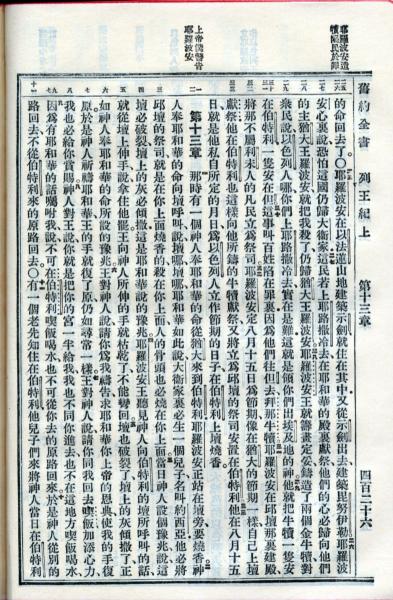 舊約全書　列王紀上　第十三章　四百二十六
耶羅波安造
犢陷民於罪
的命回去了○耶羅波安在以法蓮山地建築示劍就住在其中又從示劍出去建築毘努伊勒耶羅波
安心裏說恐怕這國仍歸大衞家這民若上耶路撒冷去在耶和華的殿裏獻祭他們的心必歸向他們
的主猶大王羅波安就把我殺了仍歸猶大王羅波安耶羅波安王就籌畫定妥鑄造了兩個金牛犢對
衆民說以色列人哪你們上耶路撒冷去實在是難這就是領你們出埃及地的神他就把牛犢一隻安
在伯特利一隻安在但這事叫百姓陷在罪裏因爲他們往但去拜那牛犢耶羅波安在邱壇那裏建殿
將那不屬利未人的凡民立爲祭司耶羅波安定八月十五日爲節期像在猶大的節期一樣自己上壇
獻祭他在伯特利也這樣向他所鑄的牛犢獻祭又將立爲邱壇的祭司安置在伯特利他在八月十五
日就是他私自所定的月日爲以色列人立作節期的日子在伯特利上壇燒香
上帝僕警告
耶羅波安
第十三章　那時有一個神人奉耶和華的命從猶大來到伯特利耶羅波安正站在壇旁要燒香神
人奉耶和華的命向壇呼叫說壇哪壇哪耶和華如此說大衞家裏必生一個兒子名叫約西亞他必將
邱壇的祭司就是在你上面燒香的殺在你上面人的骨頭也必燒在你上面當日神人設個豫兆說這
壇必破裂壇上的灰必傾撒這是耶和華說的豫兆耶羅波安王聽見神人向伯特利的壇所呼叫的話
就從壇上伸手說拿住他罷王向神人所伸的手就枯乾了不能彎回壇也破裂了壇上的灰傾撒了正
如神人奉耶和華的命所設的豫兆王對神人說請你爲我禱告求耶和華你上帝的恩典使我的手復
原於是神人祈禱耶和華王的手就復了原仍如尋常一樣王對神人說請你同我回去喫飯加添心力
我也必給你賞賜神人對王說你就是把你的宮一半給我我也不同你進去也不在這地方喫飯喝水
因爲有耶和華的話囑咐我說不可在伯特利喫飯喝水也不可從你去的原路回來於是神人從別的
路回去不從伯特利來的原路回去○有一個老先知住在伯特利他兒子們來將神人當日在伯特利